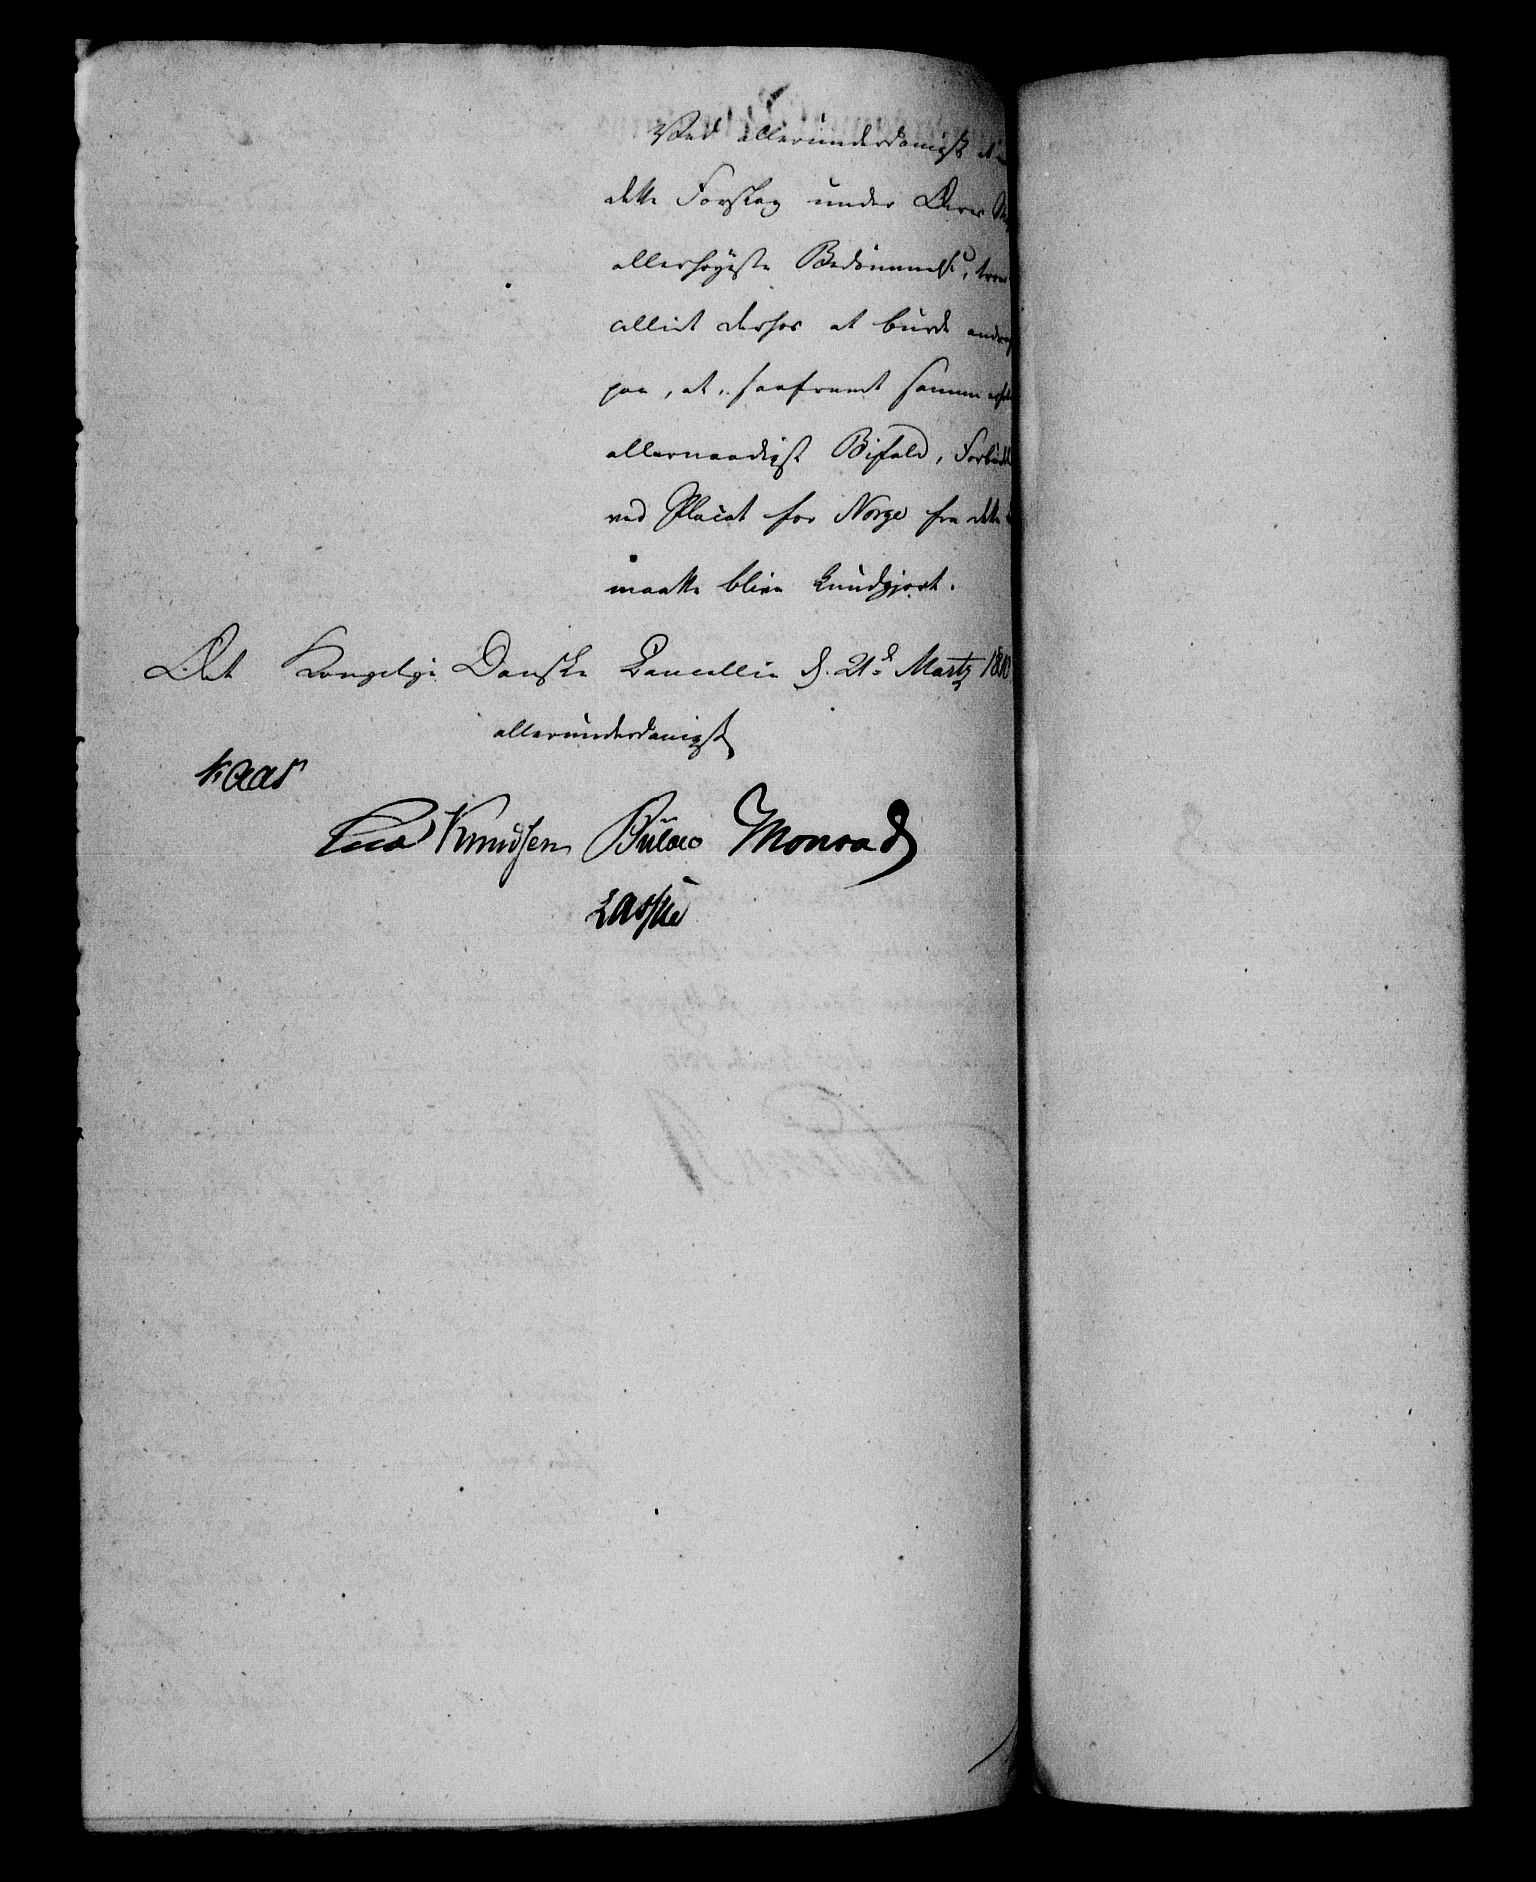 Ved allerunderdanigst at
dette Forslag under Deres
allerhøyeste Bedømmelse, troer
allict derhos at burde andrage
paa, at, saafremt samme
allernaadigst Bifald, Forbudet
ved Placat for Norge fra dette
maatte blive kundgjort.
Det Kongelige Danske Cancellie d. 21de Martz
allerunderdanigst
Kaas
Knudsen Bülow Monrad
Lassen